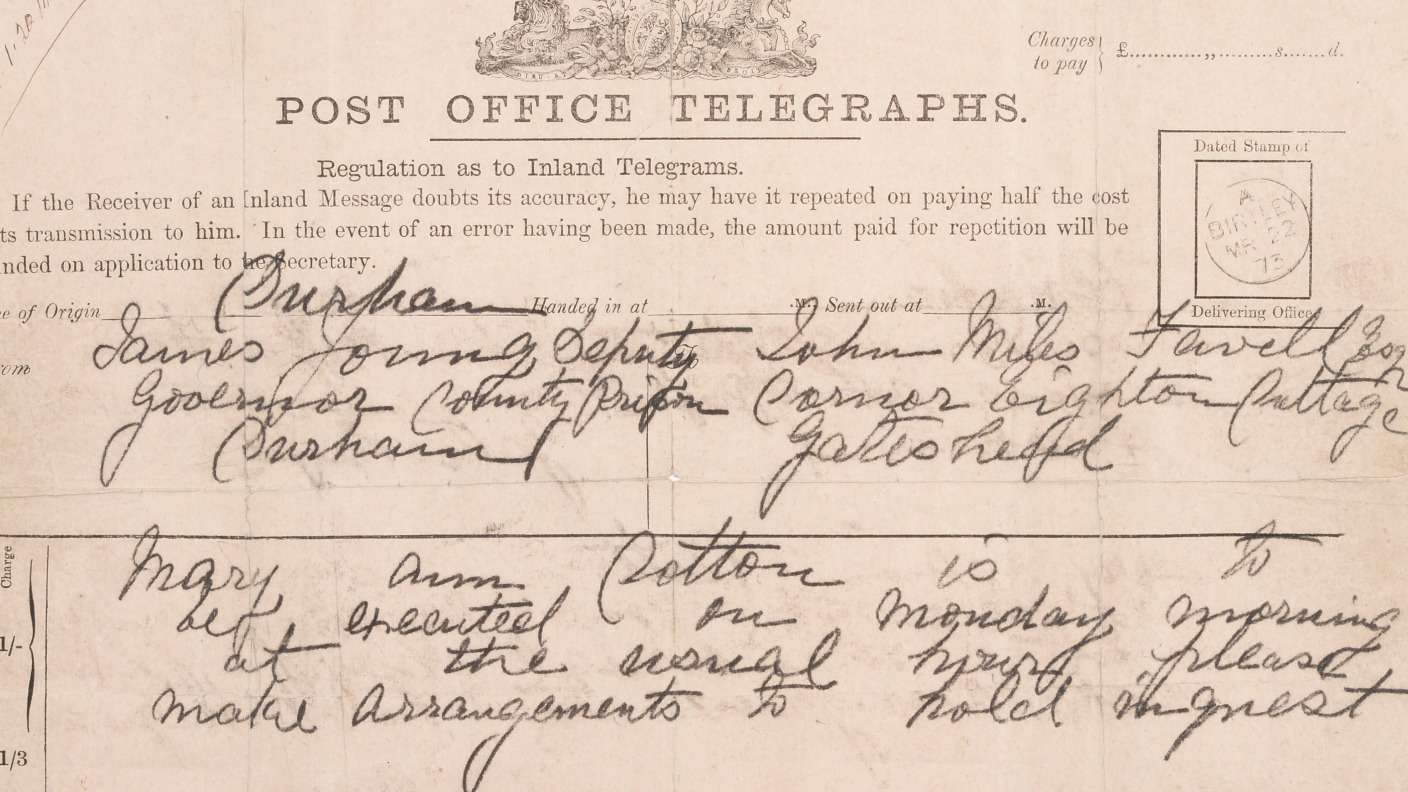 1.20
Charges to pay } £............,,.........s.......d.
POST OFFICE TELEGRAPHS.
Regulation as to Inland Telegrams.
If the Receiver of an Inland Message doubts its accuracy, he may have it repeated on paying half the cost
ts transmission to him. In the event of an error having been made, the amount paid for repetition will be
nded on application to he Secretary.
Dated Stamp of
A
BIRTLEY
MR 22
73
Delivering Office
e of Origin Durham Handed in at .M. Sent out at .M.
om
James Young Deputy
Governor County Prison
Durham
To
John Miles Favell Esq
Corner Eighton Cottage
Gateshead
Charge
1/-
1/3
Mary ann Cotton is to
be executed on Monday morning
at the usual hour please
make arrangements to hold inquest